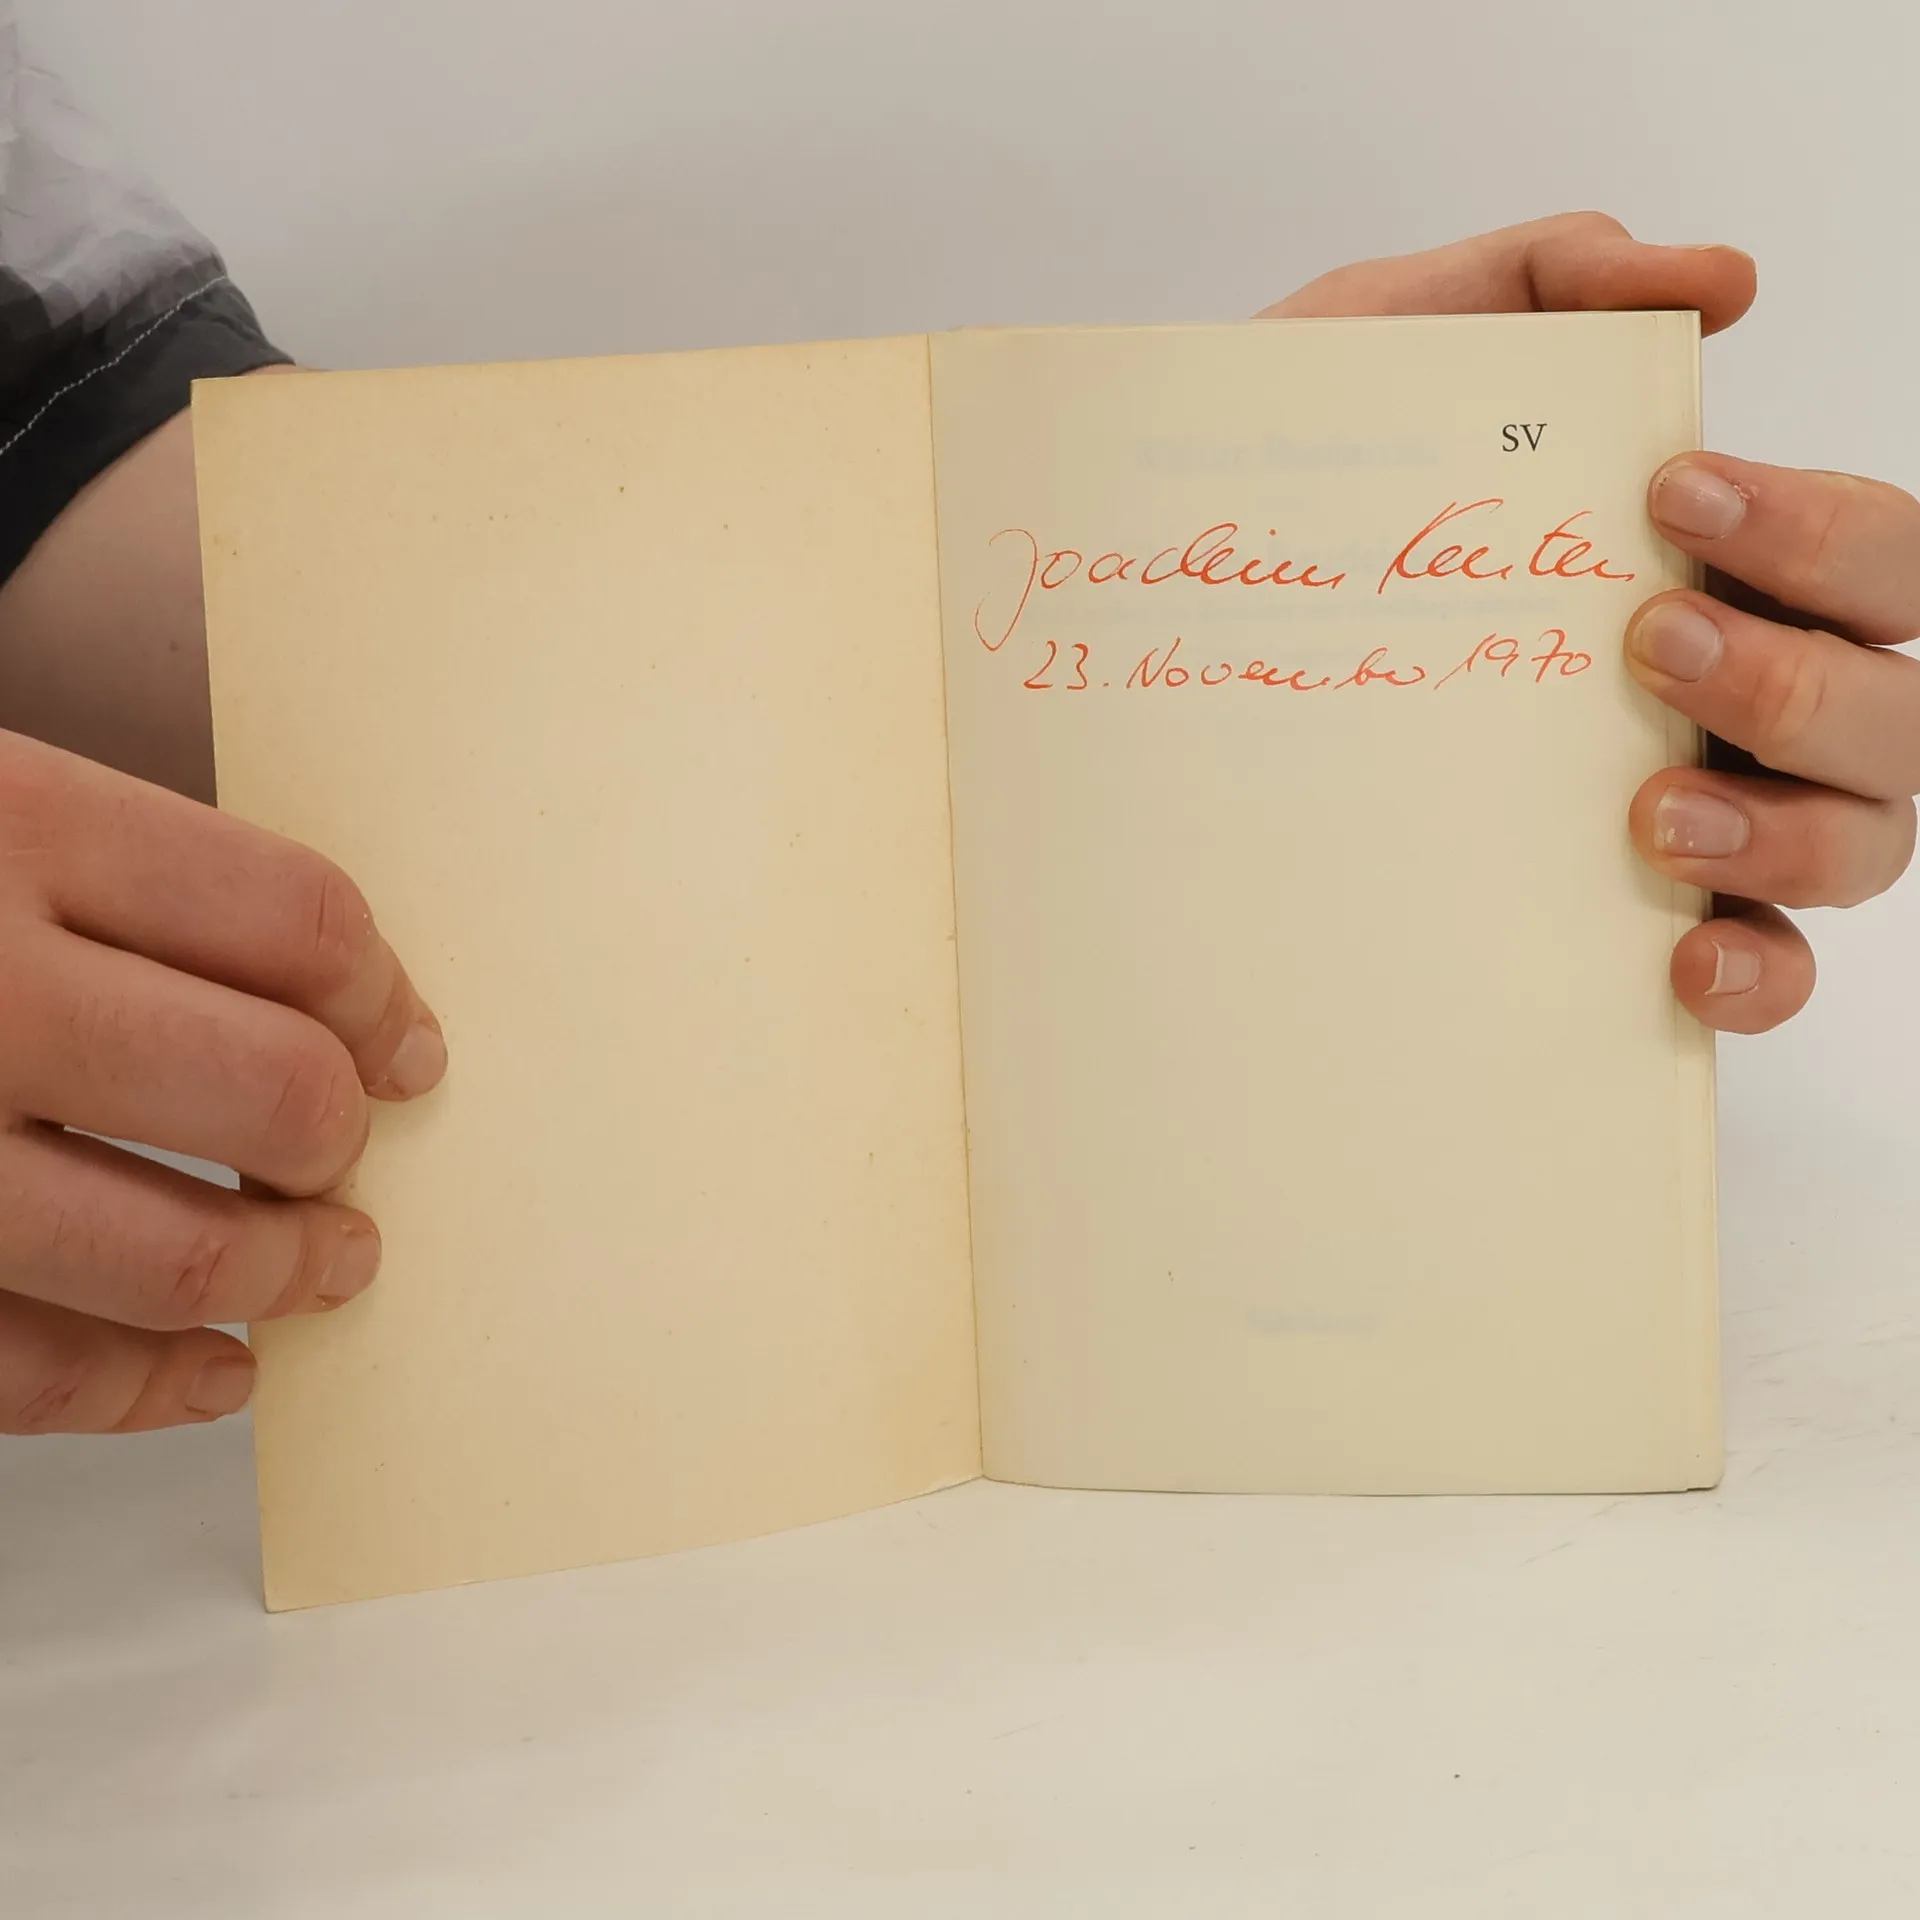 SV
Joachim Kersten
23. November 1970